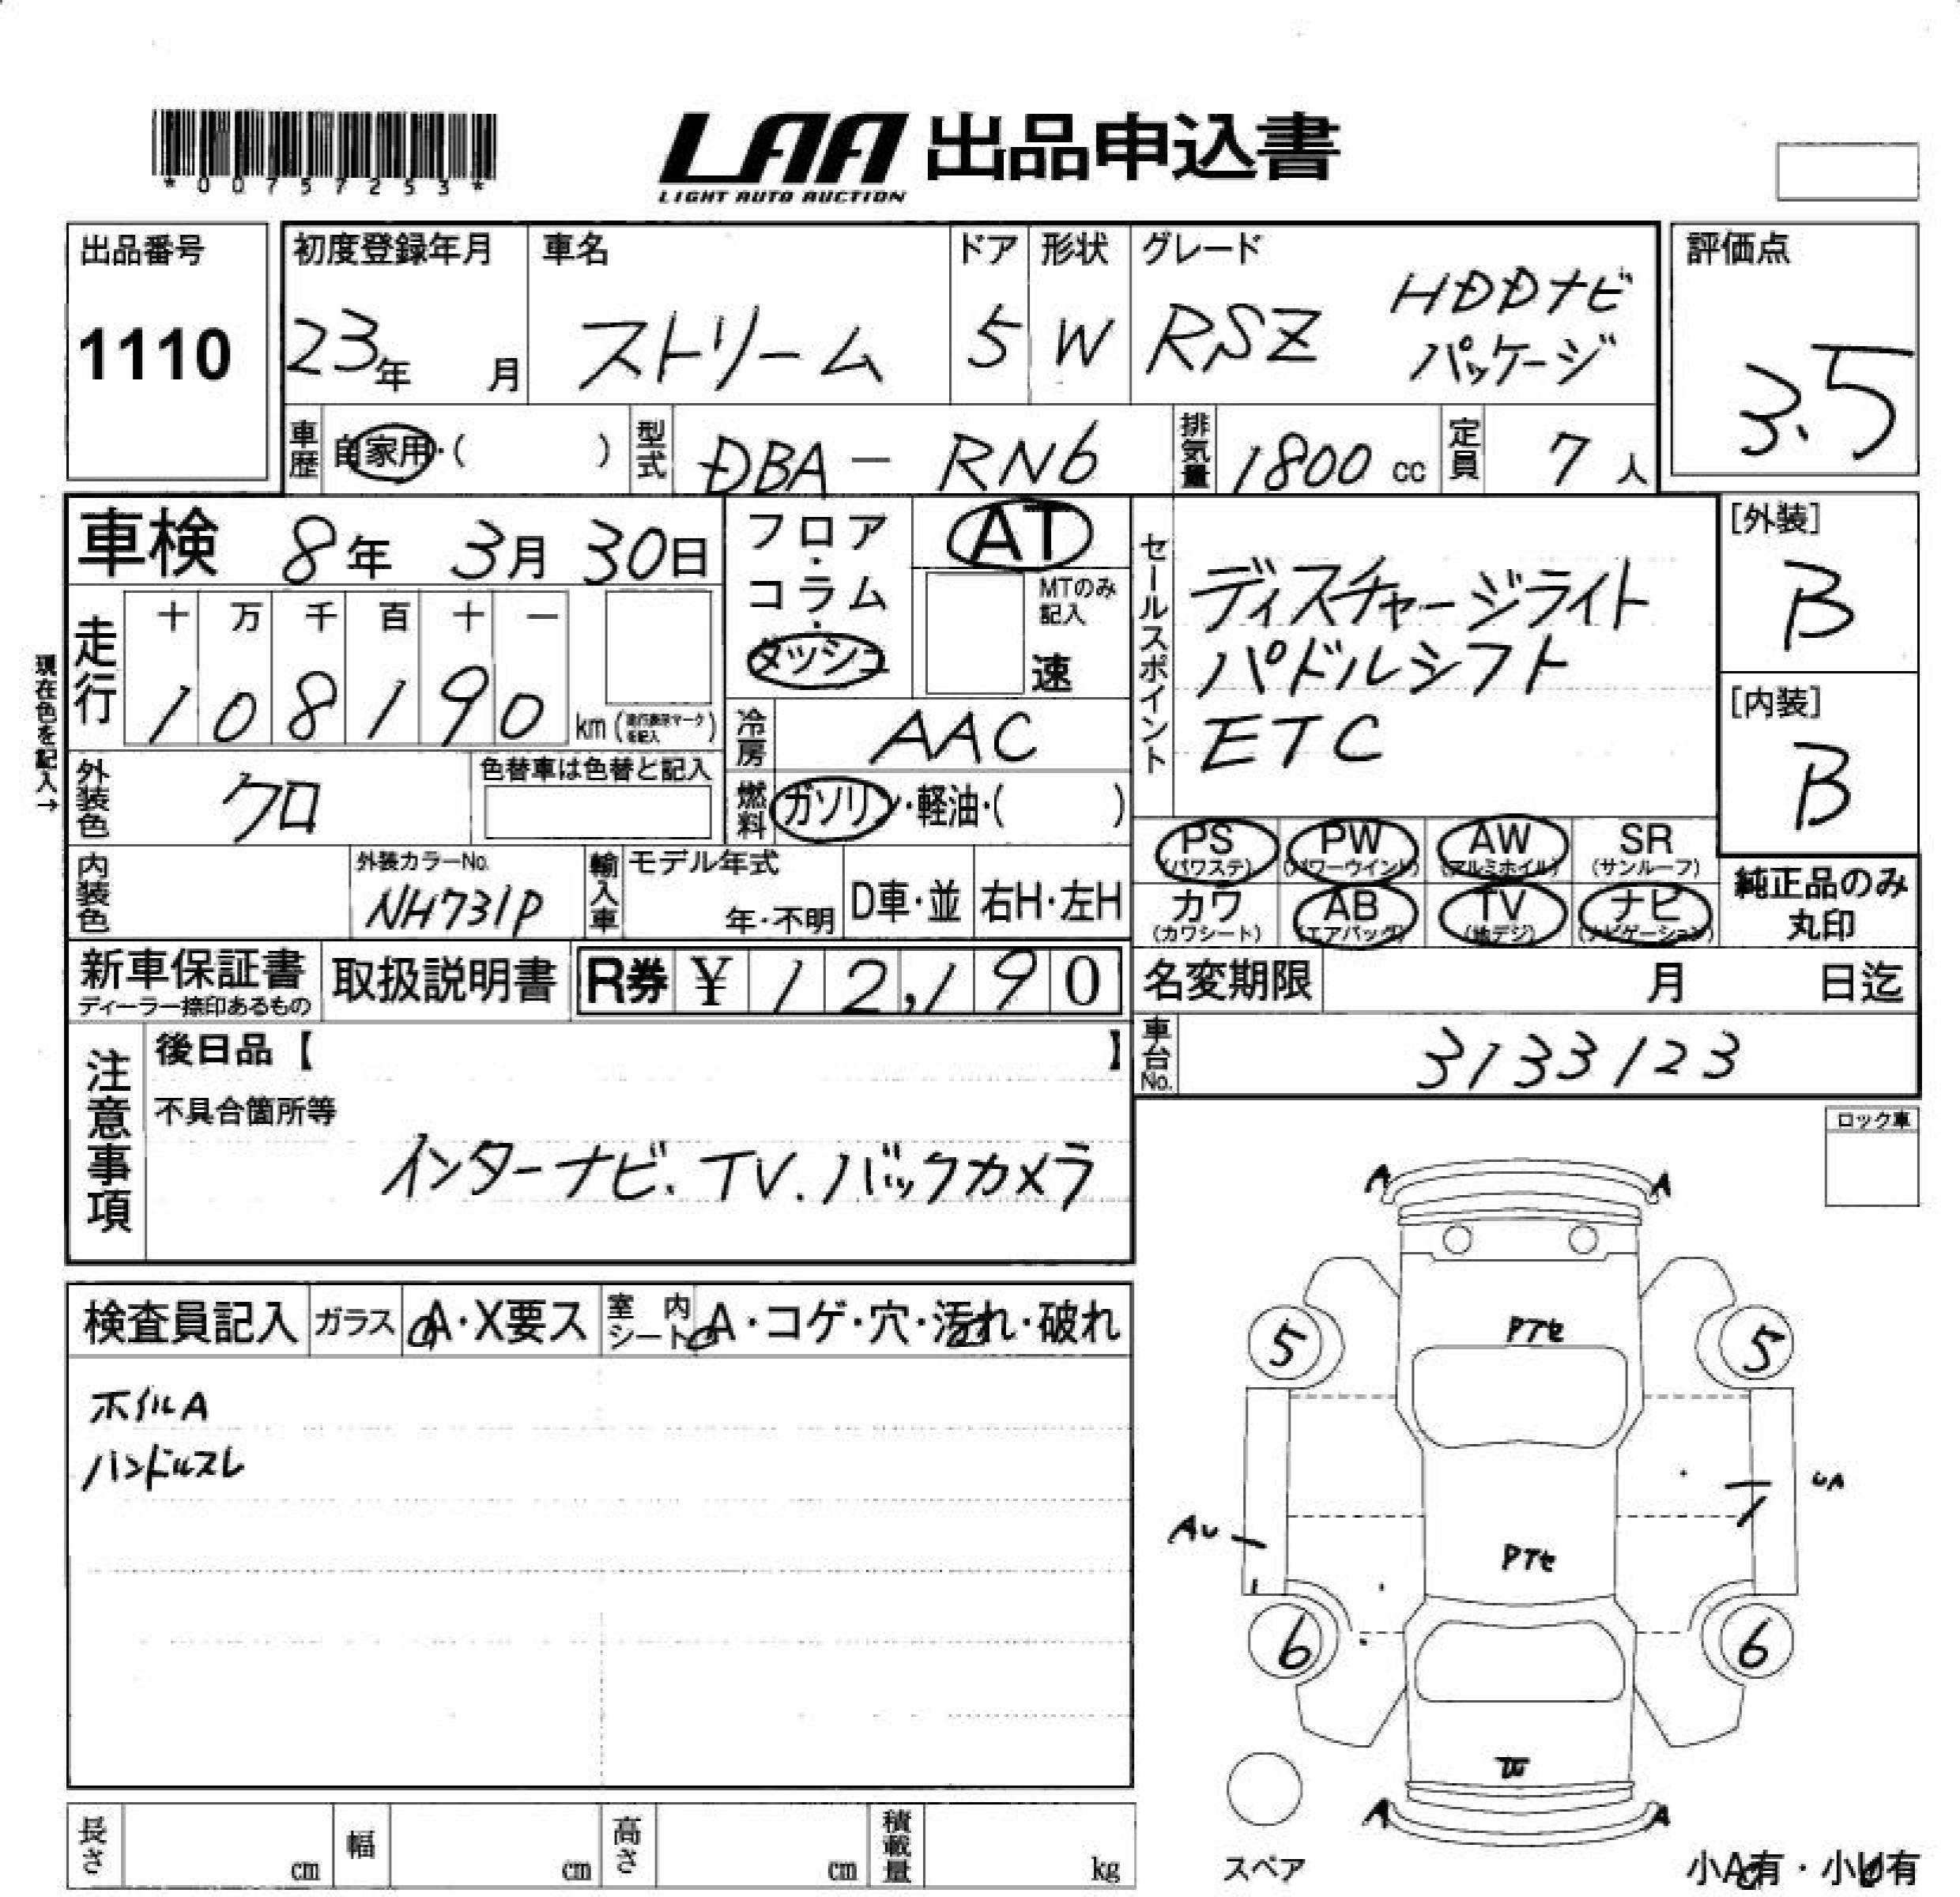 *00757253*
LAA 出品申込書
LIGHT AUTO AUCTION
出品番号
1110
初度登録年月
23年 月
車名
ストリーム
ドア
5
形状
W
グレード
RSZ HDDナビ
パッケージ
評価点
3.5
車歴 自家用・( )
型式 DBA - RN6
排気量 1800 cc
定員 7 人
車検 8年 3月 30日
フロア・
コラム・
ダッシュ
AT
MTのみ
記入
速
セールスポイント
ディスチャージライト
パドルシフト
ETC
[外装]
B
[内装]
B
現在色を記入→
走行
十 万 千 百 十 一
1 0 8 1 9 0 km
冷房 AAC
外装色 クロ
色替車は色替と記入
燃料 ガソリン・軽油・( )
PS
(パワステ)
PW
(パワーウインド)
AW
(アルミホイル)
SR
(サンルーフ)
カワ
(カワシート)
AB
(エアバッグ)
TV
(地デジ)
ナビ
(ナビゲーション)
純正品のみ
丸印
内装色
外装カラーNo.
NH731P
輸入車 モデル年式
年・不明
D車・並
右H・左H
新車保証書
ディーラー捺印あるもの
取扱説明書
R券 ¥ 1 2,1 9 0
名変期限 月 日迄
車台No. 3133123
注意事項
後日品【 】
不具合箇所等
インターナビ. TV. バックカメラ
ロック車
A A
PTセ
5 5
UA
AU
PTセ
6 6
A A
スペア
小A有・小U有
検査員記入
ガラス A・X要ス
室内シート A・コゲ・穴・汚れ・破れ
ホイルA
ハンドルスレ
長さ cm
幅 cm
高さ cm
積載量 kg